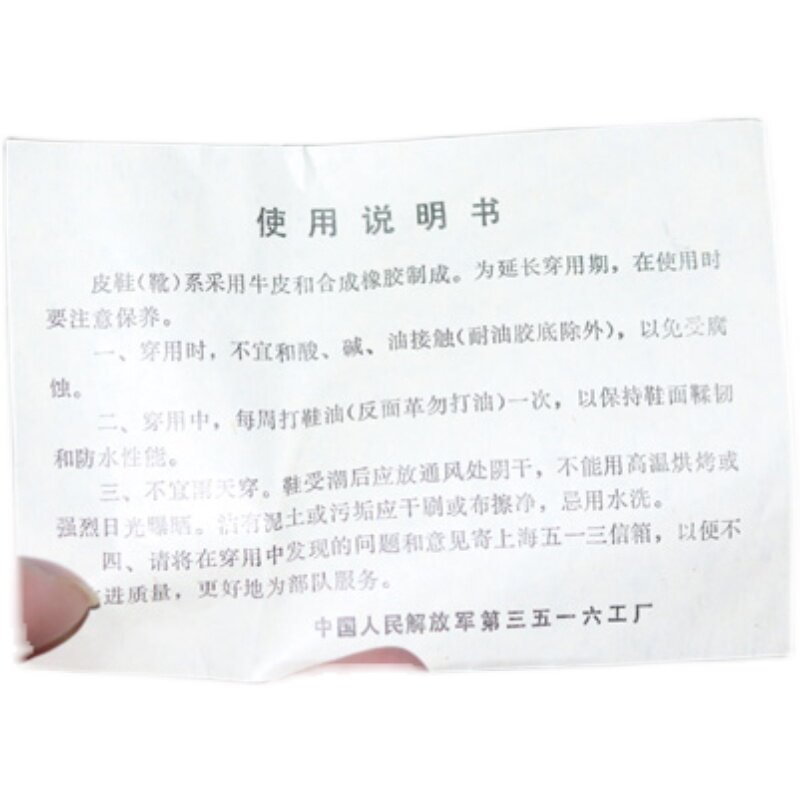 使用说明书
皮鞋(靴)系采用牛皮和合成橡胶制成。为延长穿用期，在使用时
要注意保养。
一、穿用时，不宜和酸、碱、油接触(耐油胶底除外)，以免受腐
蚀。
二、穿用中，每周打鞋油(反面革勿打油)一次，以保持鞋面鞣韧
和防水性能。
三、不宜雨天穿。鞋受潮后应放通风处阴干，不能用高温烘烤或
强烈日光曝晒。沾有泥土或污垢应干刷或布擦净，忌用水洗。
四、请将在穿用中发现的问题和意见寄上海五一三信箱，以便不
进质量，更好地为部队服务。
中国人民解放军第三五一六工厂